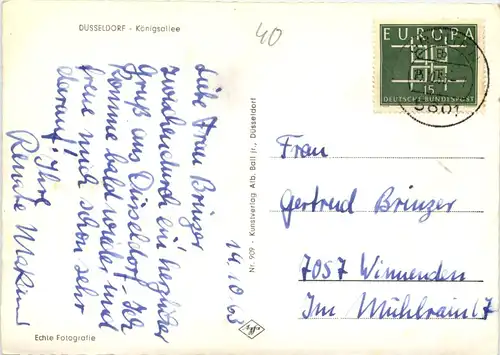 DÜSSELDORF - Königsallee
40
EUROPA
15
DEUTSCHE BUNDESPOST
5601
14.10.63
Liebe Frau Brinzer
zwischendurch ein herzlicher
Gruß aus Düsseldorf. Ich
komme bald wieder und
freue mich schon sehr
darauf! Ihre
Renate
Nr. 909 - Kunstverlag Alb. Ball jr., Düsseldorf
Agfa
Frau
Gertrud Brinzer
7057 Winnenden
Im Mühlrain 17
Echte Fotografie